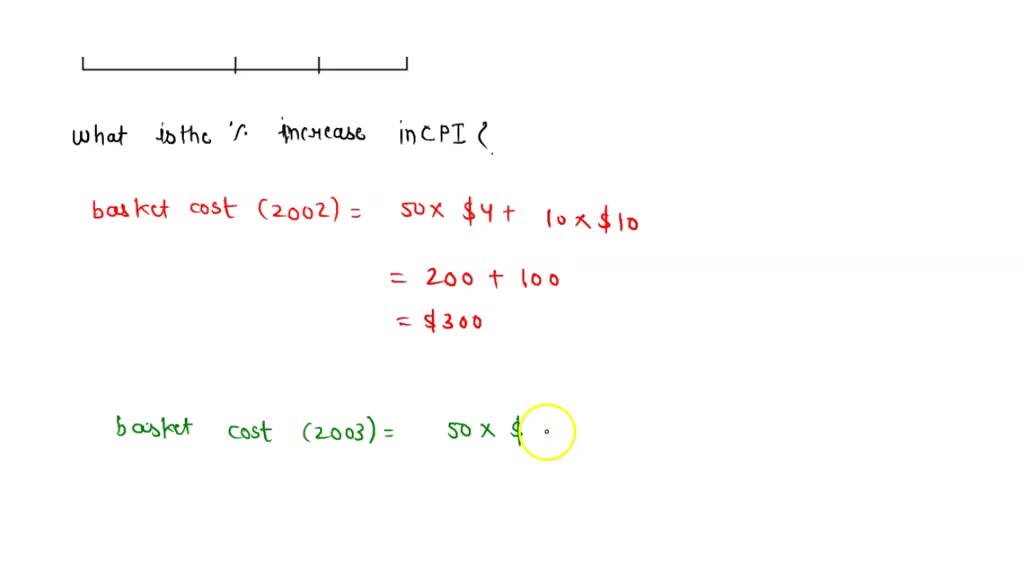 what is the %. increase in CPI ?
basket cost (2002) = 50 x $4 + 10 x $10
= 200 + 100
= $300
basket cost (2003) = 50 x $